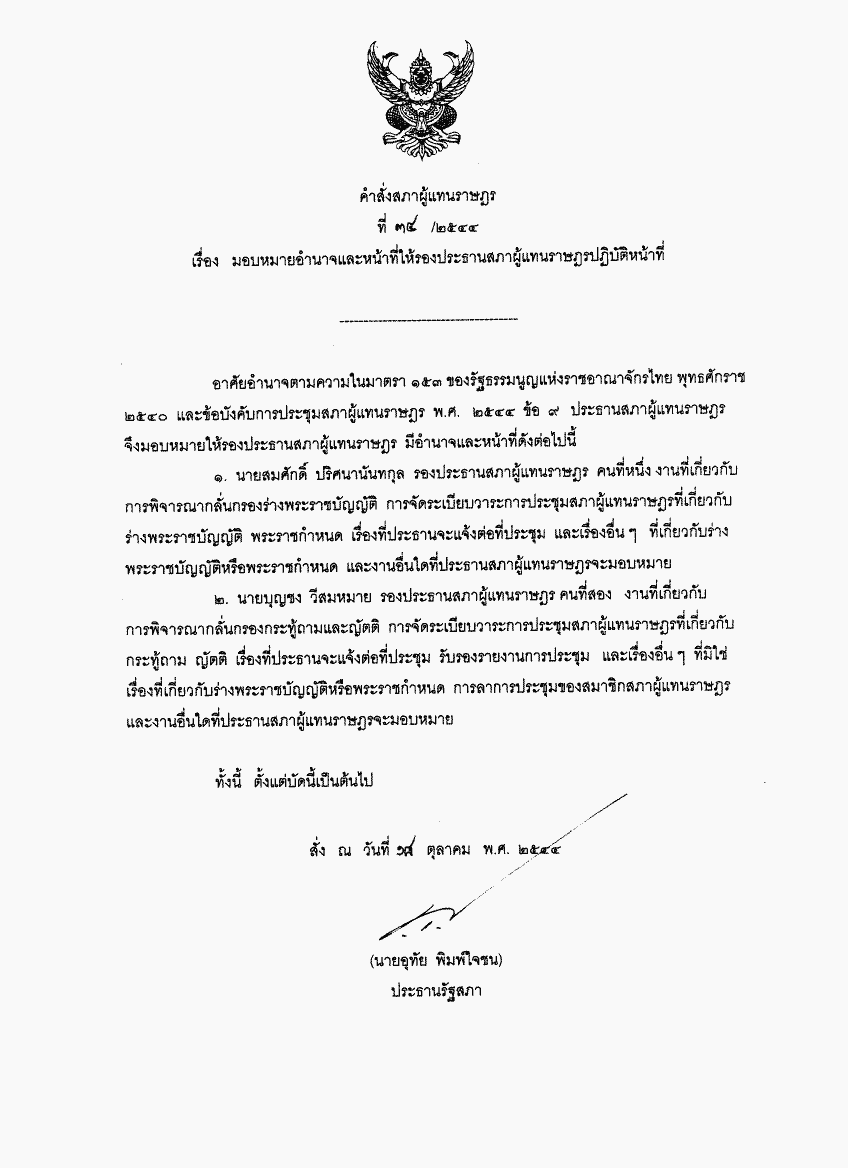 คำสั่งสภาผู้แทนราษฎร
ที่ /๒๕๔๔
เรื่อง มอบหมายอำนาจและหน้าที่ให้รองประธานสภาผู้แทนราษฎรปฏิบัติหน้าที่
อาศัยอำนาจตามความในมาตรา ๑๕๓ ของรัฐธรรมนูญแห่งราชอาณาจักรไทย พุทธศักราช
๒๕๔๐ และข้อบังคับการประชุมสภาผู้แทนราษฎร พ.ศ. ๒๕๔๔ ข้อ ๙ ประธานสภาผู้แทนราษฎร
จึงมอบหมายให้รองประธานสภาผู้แทนราษฎร มีอำนาจและหน้าที่ดังต่อไปนี้
๑. นายสมศักดิ์ ปริศนานันทกุล รองประธานสภาผู้แทนราษฎร คนที่หนึ่ง งานที่เกี่ยวกับ
การพิจารณากลั่นกรองร่างพระราชบัญญัติ การจัดระเบียบวาระการประชุมสภาผู้แทนราษฎรที่เกี่ยวกับ
ร่างพระราชบัญญัติ พระราชกำหนด เรื่องที่ประธานจะแจ้งต่อที่ประชุม และเรื่องอื่น ๆ ที่เกี่ยวกับร่าง
พระราชบัญญัติหรือพระราชกำหนด และงานอื่นใดที่ประธานสภาผู้แทนราษฎรจะมอบหมาย
๒. นายบุญชง วีสมหมาย รองประธานสภาผู้แทนราษฎร คนที่สอง งานที่เกี่ยวกับ
การพิจารณากลั่นกรองกระทู้ถามและญัตติ การจัดระเบียบวาระการประชุมสภาผู้แทนราษฎรที่เกี่ยวกับ
กระทู้ถาม ญัตติ เรื่องที่ประธานจะแจ้งต่อที่ประชุม รับรองรายงานการประชุม และเรื่องอื่น ๆ ที่มิใช่
เรื่องที่เกี่ยวกับร่างพระราชบัญญัติหรือพระราชกำหนด การลาการประชุมของสมาชิกสภาผู้แทนราษฎร
และงานอื่นใดที่ประธานสภาผู้แทนราษฎรจะมอบหมาย
ทั้งนี้ ตั้งแต่บัดนี้เป็นต้นไป
สั่ง ณ วันที่ ตุลาคม พ.ศ. ๒๕๔๔
(นายอุทัย พิมพ์ใจชน)
ประธานรัฐสภา